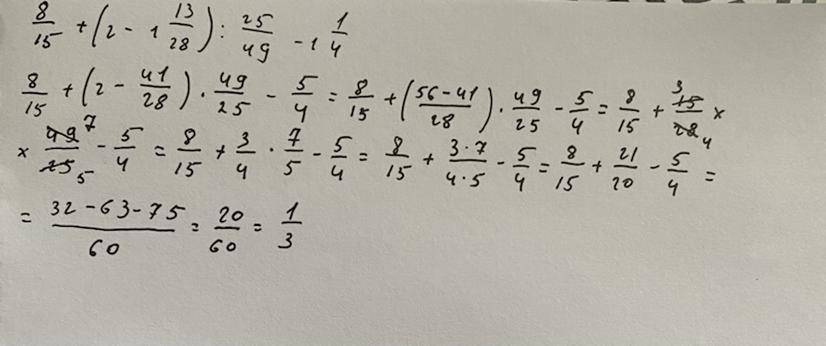 8/15 + (2 - 1 13/28) : 25/49 - 1 1/4
8/15 + (2 - 41/28) · 49/25 - 5/4 = 8/15 + (56-41/28) · 49/25 - 5/4 = 8/15 + 15/28 3 4 ×
× 49/25 7 5 - 5/4 = 8/15 + 3/4 · 7/5 - 5/4 = 8/15 + 3·7/4·5 - 5/4 = 8/15 + 21/20 - 5/4 =
= 32-63-75/60 = 20/60 = 1/3